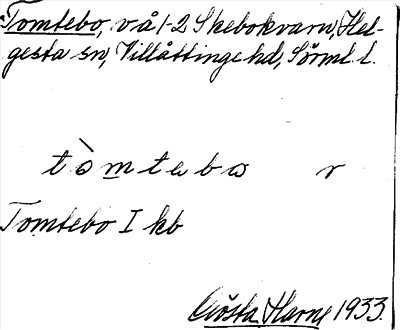 Tomtebo, vå 1-2 Skebokvarn, Hel-
gesta sn, Villåttinge hd, Sörml. l.
tòmtebo r
Tomtebo I kb
Gösta Harne 1933.